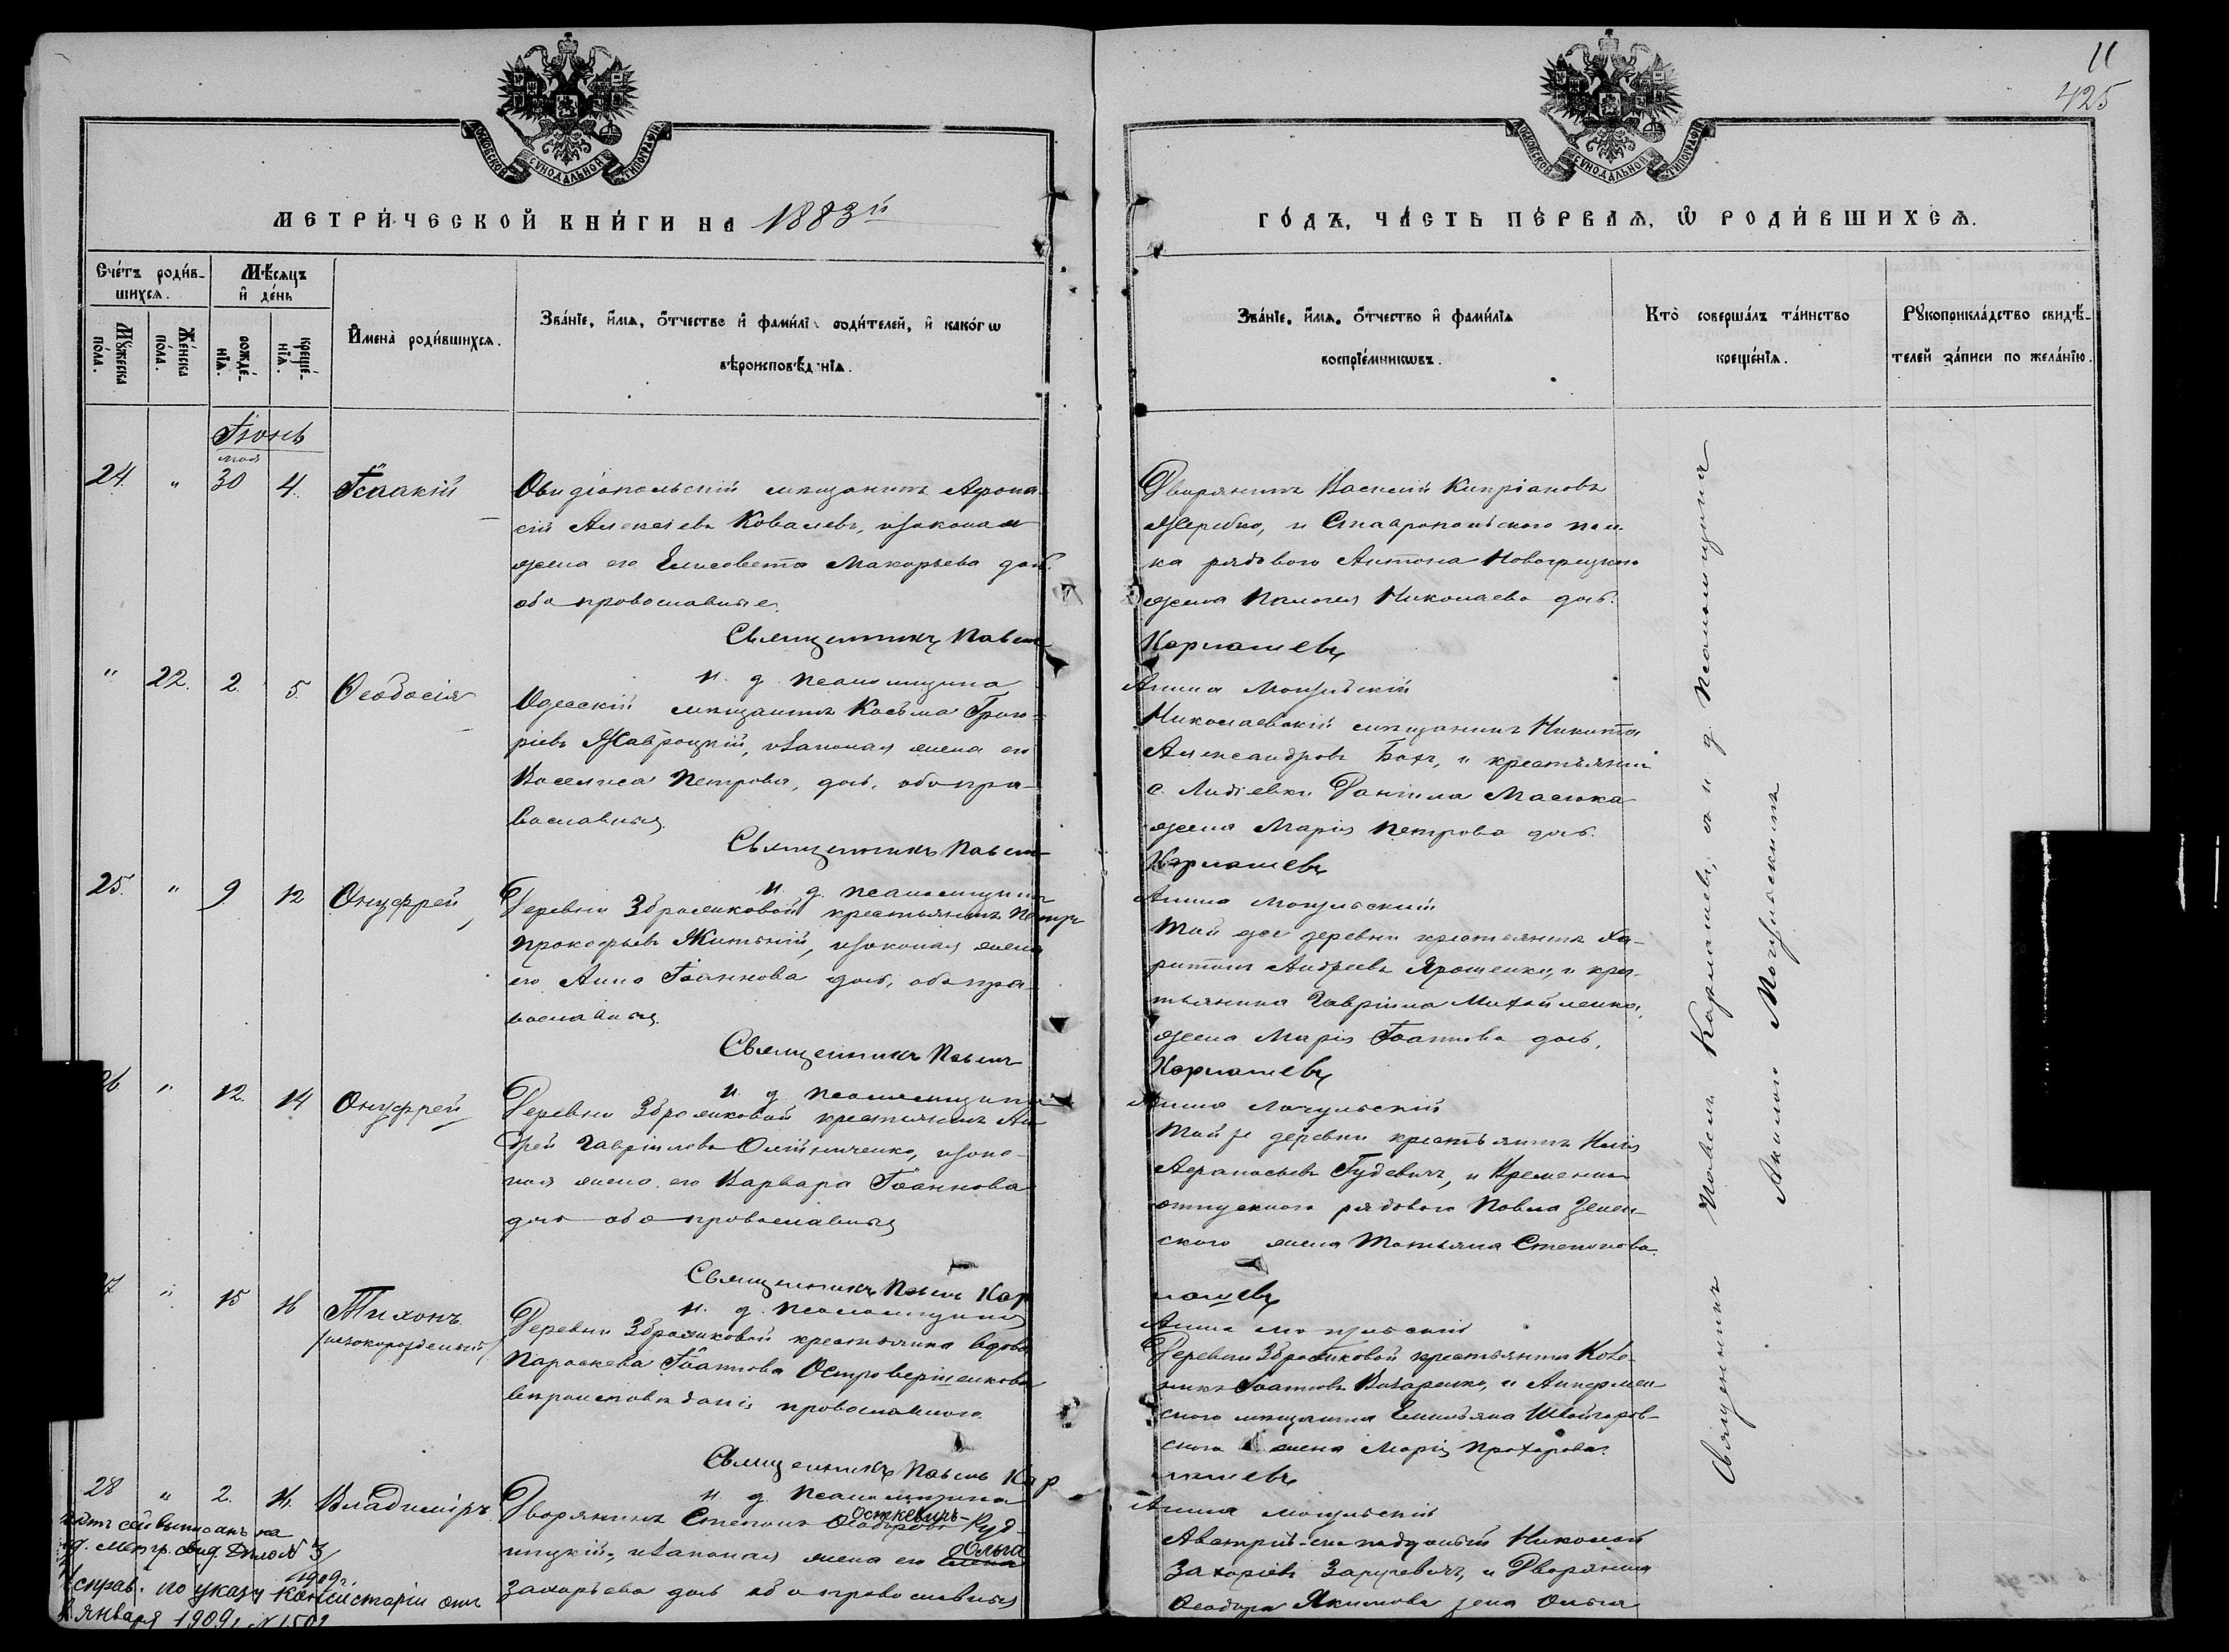 11
425
МОСКОВСКОЙ СѴНОДАЛЬНОЙ ТИПОГРАФІИ
МОСКОВСКОЙ СѴНОДАЛЬНОЙ ТИПОГРАФІИ
МЕТРИ́ЧЕСКОЙ КНИ́ГИ НА 1883й
ГО́ДЪ, ЧА́СТЬ ПЕ́РВАЯ, Ѡ РОДИ́ВШИХСЯ.
Счётъ роди́в-
шихся.
Мѣ́сяцъ
и де́нь
Му́жеска по́ла.
Же́нска по́ла.
рожде́-нїя.
креще́-нїя.
Имена̀ роди́вшихся.
Зва́нїе, и́мя, о́тчество и фами́лїя роди́телей, и како́гѡ
вѣроисповѣ́данїя.
Зва́нїе, и́мя, о́тчество и фами́лїя
воспрїе́мникѡвъ.
Кто̀ соверша́лъ та́инство
креще́нїя.
Рукоприкла́дство свидѣ́-
телей за́писи по жела́нїю.
Іюнь
мая
24. " 30 4. Ісаакій
Овидіопольскій мѣщанинъ Афана-
сій Алексѣевъ Ковалевъ, и законная
жена его Елисавета Макарьева доч.
оба православные.
Священникъ Павелъ
и. д. псаломщика
Дворянинъ Василій Кипріановъ
Жеребко, и Ставропольского пол-
ка рядового Антона Новогрецкого
жена Пелагея Николаева доч.
Кармашевъ
Акила Могульскій
" 22. 2. 5. Ѳеодосія
Одесскій мѣщанинъ Косьма Григо-
ріевъ Жавроцкій, и законная жена его
Василиса Петрова, доч. оба пра-
вославные.
Священникъ Павелъ
и. д. псаломщика
Николаевскій мѣщанинъ Никита
Александровъ Бахъ, и крестьянина
с. Лидіевки Даніила Масюка
жена Марія Петрова доч.
Кармашевъ
Акила Могульский
25. " 9 12 Онуфрей
Деревни Збрашковой крестьянинъ Петръ
Прокофьевъ Житный, и законная жена
его Анна Іоаннова доч., оба пра-
вославные.
Священникъ Павелъ
и. д. псаломщика
Той же деревни крестьянинъ Ха-
ритонъ Андреевъ Ярошенко, и кре-
стьянина Гавріила Михайленка,
жена Марія Іоаннова доч.
Кармашевъ
Акила Могульскій
26 " 12. 14 Онуфрей
Деревни Збрашковой крестьянинъ Ан-
дрей Гавріиловъ Олійниченко, и закон-
ная жена его Варвара Іоаннова
доч. оба православные
Священникъ Павелъ Кар
и. д. псаломщика
Той же деревни крестьянинъ Илія
Афанасьевъ Гудевичъ, и временно
отпускного рядового Павла Зелен-
ского жена Татьяна Степанова.
машевъ
Акила Могульскій
27 " 15 16 Тихонъ
/незаконорожденный/
Деревни Збрашковой крестьянка вдова
Параскева Іоаннова Островершенкова
вѣроисповѣданія православного.
Священникъ Павелъ Кар
и. д. псаломщика
Деревни Збрашковой крестьянинъ
Іоанновъ Бондаренко, и Ананьев-
ского мѣщанина Емильяна Швайгоров-
ского жена Марія Прохорова.
машевъ
Акила Могульскій
28 " 2. 16. Владиміръ
Дворянинъ Степанъ Осткевичъ- Руд-
ницкій, и законная жена его Ольга
Захарьева доч. оба православные
Австрійско-подданный Николай
Захаріевъ Заруцевичъ, и Дворянина
Ѳеодора Якимова жена Ольга
Актъ сей выписанъ на
метр. свид. Дѣло № 3/1909г.
Исправ. по указу Консисторіи отъ
января 1909г. № 1502
Священникъ Павелъ Кармашевъ, а и д псаломщика
Акила Могульскимъ